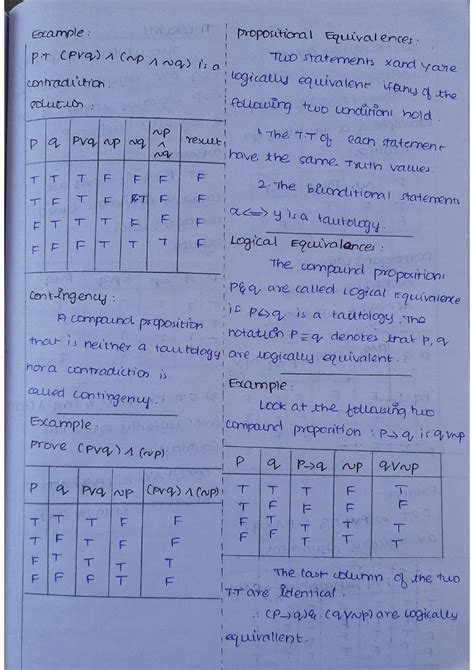 Example:
PT (PVq) ∧ (~p ∧ ~q) is a
contradiction.
solution:
P q PVq ~p ~q ~p ∧ ~q result
T T T F F F F
T F T F T F F
F T T T F F F
F F F T T T F
Contingency:
A compound proposition
that is neither a tautology
nor a contradiction is
called contingency.
Example:
Prove (PVq) ∧ (~p)
P q PVq ~p (PVq) ∧ (~p)
T T T F F
T F T F F
F T T T T
F F F T F
Propositional Equivalences:
Two statements x and y are
logically equivalent if any of the
following two conditions hold.
1. The TT of each statement
have the same Truth values
2. The biconditional statements
x <=> y is a tautology.
Logical Equivalences:
The compound propositions
P & q are called Logical Equivalence
if P↔q is a tautology. The
notation P ≡ q denotes that P, q
are logically equivalent.
Example:
Look at the following two
compound proposition : P→q is qV~p
P q P→q ~p qV~p
T T T F T
T F F F F
F T T T T
F F T T T
The last column of the two
TT are identical.
∴ (P→q) & (qV~p) are logically
equivallent.